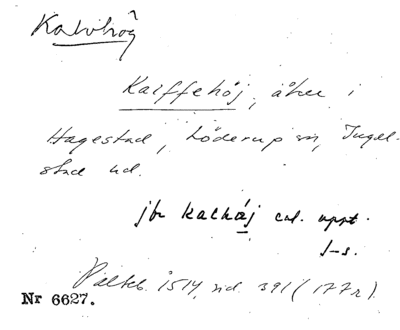 Kalvhög
Kalffehöj, åker i
Hagestad, Löderup sn, Ingel-
stad hd.
jbr kalhåj enl. uppt.
J-s.
Palteb. 1514, sid. 391 (177r).
Nr 6627.